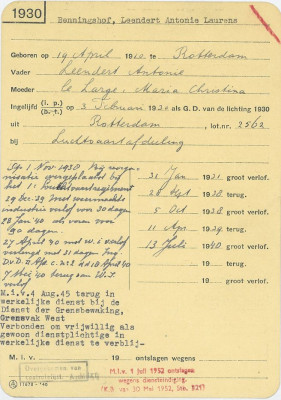 1930
Benningshof, Leendert Antonie Laurens
Geboren op 19 April 1910 te Rotterdam
Vader Leendert Antonie
Moeder le Large, Maria Christina
Ingelijfd (l. p.) (b.-t.) op 3 Februari 1930 als G.D. van de lichting 1930
uit Rotterdam, lot.nr. 2562
bij Luchtvaartafdeling
1 Nov 1938 Bij reorga-
nisatie overgeplaatst bij
het 11
29 Dec. 39 met
industrie verlof voor 30 dagen
28 Jan 40 als voren voor
90 dagen.
27 April 40 met verlof
verlengd met 31 dagen
7 Mei 40 terug van
gewoon verlof
31 Jan 1931 groot verlof.
1938 groot verlof.
5 Oct 1938 groot verlof.
11 Apr 1939 terug.
13 Juli 1940 groot verlof.
19 terug.
19 groot verlof.
19 terug.
M.i.v.4 Aug.45 terug in
werkelijke dienst bij de
Dienst der Grensbewaking,
Grensvak West
Verbonden om vrijwillig als
gewoon dienstplichtige in
werkelijke dienst te verblij-
M. i. v. 19 ontslagen wegens
M.i.v. 1 juli 1952 ontslagen
wegens diensteindiging.
(K.B. van 30 Mei 1952, no. 521)